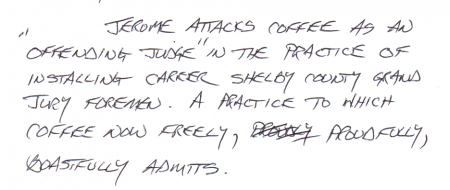 " JEROME ATTACKS COFFEE AS AN
OFFENDING JUDGE" IN THE PRACTICE OF
INSTALLING CAREER SHELBY COUNTY GRAND
JURY FOREMEN. A PRACTICE TO WHICH
COFFEE NOW FREELY, PROUDFULLY,
BOASTFULLY ADMITS.